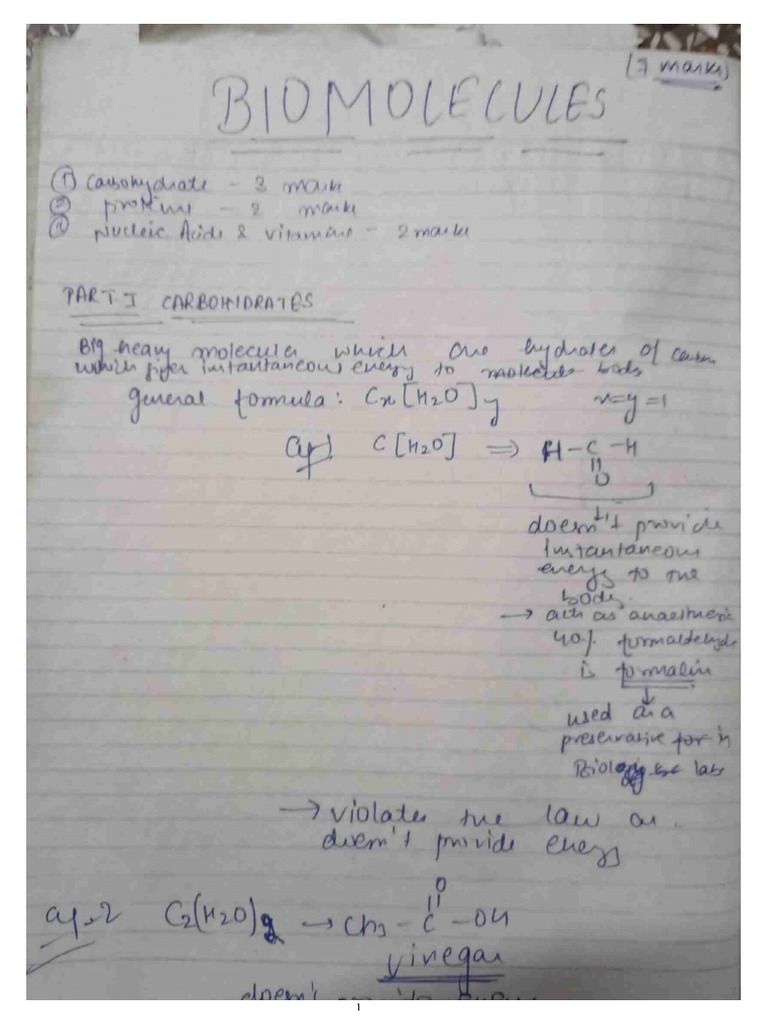 (7 marks)
BIOMOLECULES
① Carbohydrate - 3 mark
② proteins - 2 marks
③ Nucleic Acids & vitamins - 2 marks
PART I CARBOHIDRATES
Big heavy molecules which are hydrates of carbon
which gives instantaneous energy to body
general formula: Cx[H2O]y x=y=1
C[H2O] ⇒ H-C-H
||
O
doesn't provide
instantaneous
energy to the
body.
→ acts as anaesthetic
40% formaldehyde
is formalin
↓
used as a
preservative for in
lab
→ violates the law as
doesn't provide energy
C2(H2O)2 → CH3-C-OH
O
||
vinegar
doesn't
1